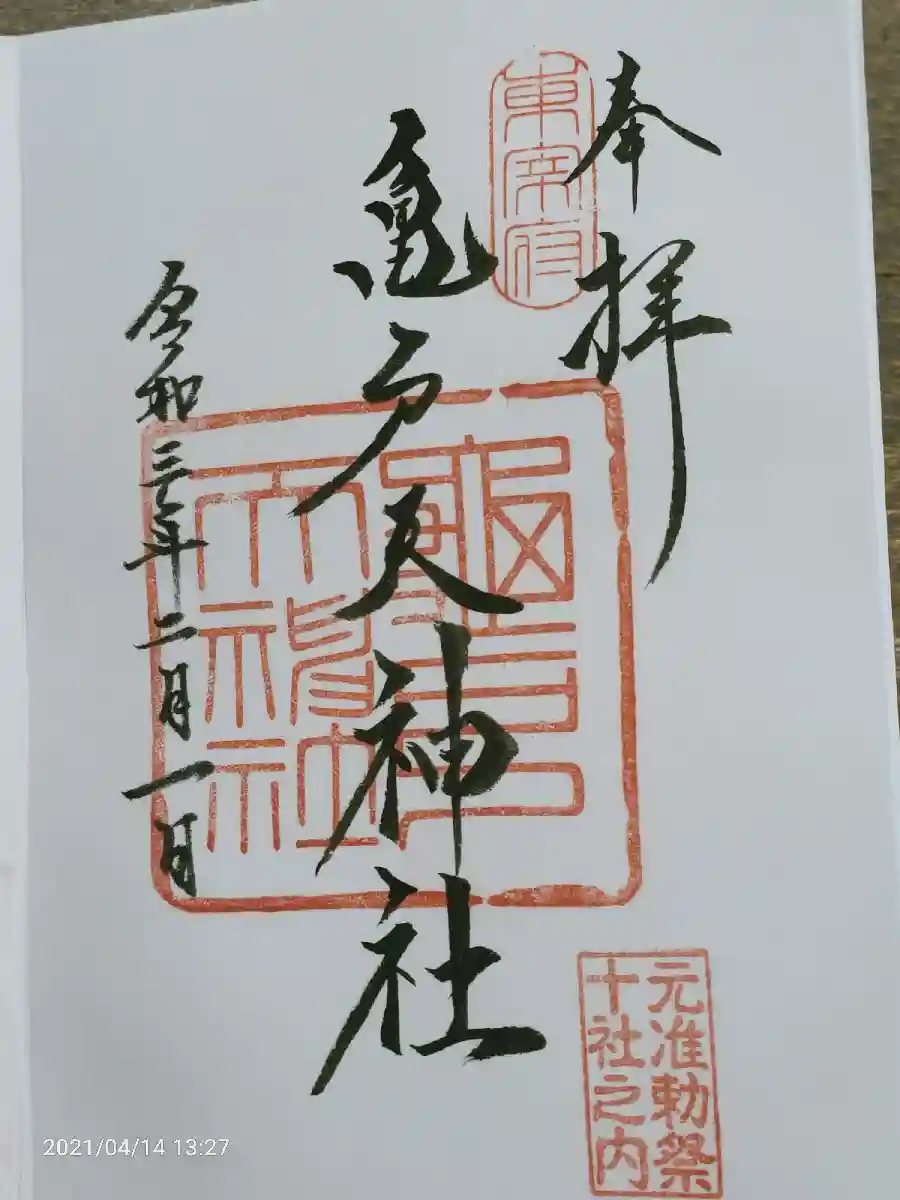 奉拝
東宰府
亀戸天神社
亀戸
天神社
令和三年二月一日
元准勅祭
十社之内
2021/04/14 13:27